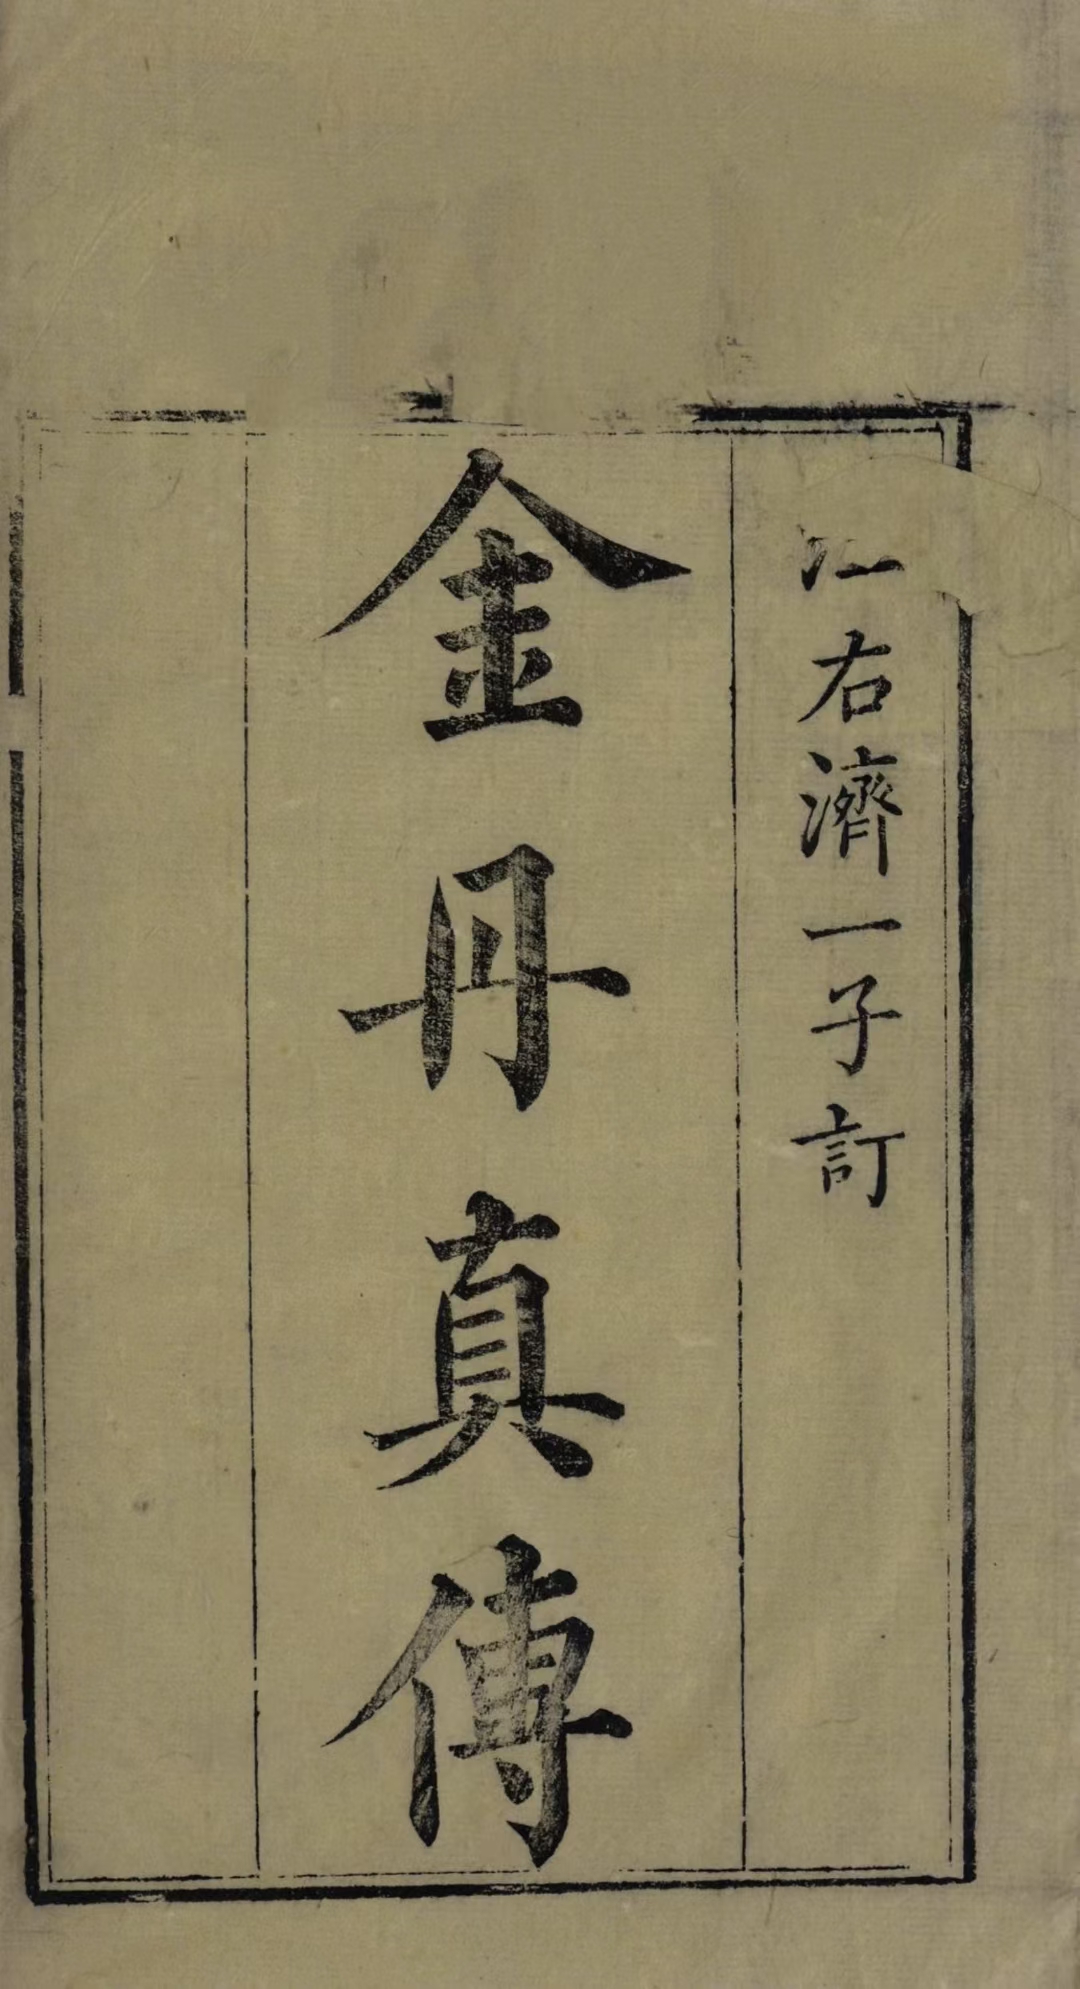 江右濟一子訂
金丹真傳